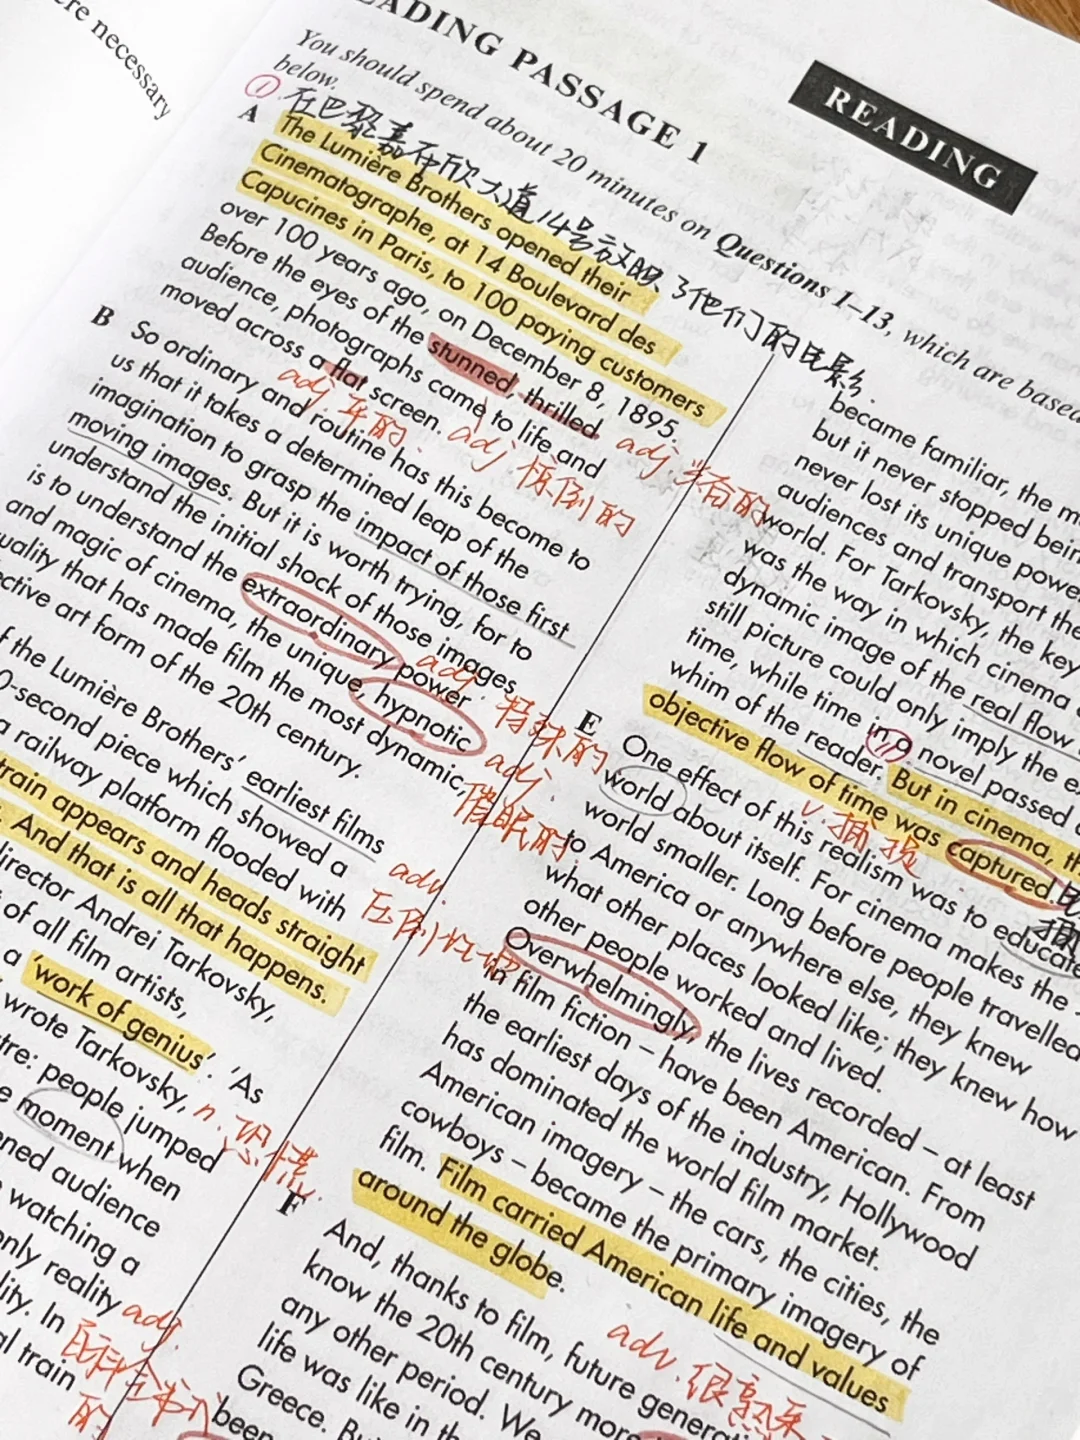 ere necessary
READING
EADING PASSAGE 1
You should spend about 20 minutes on Questions 1–13, which are based
below.
① 在巴黎嘉布欣大道14号放映了他们的电影.
A The Lumière Brothers opened their
Cinematographe, at 14 Boulevard des
Capucines in Paris, to 100 paying customers
over 100 years ago, on December 8, 1895.
Before the eyes of the stunned, thrilled
audience, photographs came to life and
moved across a flat screen.
adj 平的
adj 惊倒的
adj.
B So ordinary and routine has this become to
us that it takes a determined leap of the
imagination to grasp the impact of those first
moving images. But it is worth trying, for to
understand the initial shock of those images
is to understand the extraordinary power
and magic of cinema, the unique, hypnotic
quality that has made film the most dynamic,
ective art form of the 20th century.
adj. 特殊的
adj. 催眠的
f the Lumière Brothers' earliest films
0-second piece which showed a
a railway platform flooded with
train appears and heads straight
. And that is all that happens.
director Andrei Tarkovsky,
of all film artists,
a 'work of genius'. 'As
wrote Tarkovsky,
tre: people jumped
e moment when
ned audience
watching a
only reality
lity. In
al train
adv. 压倒性地
n. 恐慌
adj.
became familiar, the m
but it never stopped bein
never lost its unique powe
audiences and transport the
world. For Tarkovsky, the key
was the way in which cinema
dynamic image of the real flow
still picture could only imply the e
time, while time in a novel passed
whim of the reader. But in cinema, th
objective flow of time was captured.
v. 捕捉
E One effect of this realism was to educate
world about itself. For cinema makes the
world smaller. Long before people travelled
to America or anywhere else, they knew
what other places looked like; they knew how
other people worked and lived.
Overwhelmingly, the lives recorded – at least
in film fiction – have been American. From
the earliest days of the industry, Hollywood
has dominated the world film market.
American imagery – the cars, the cities, the
cowboys – became the primary imagery of
film. Film carried American life and values
around the globe.
adv. 很熟悉
F And, thanks to film, future generati
know the 20th century more
any other period. We
life was like in the
Greece. Bu
been